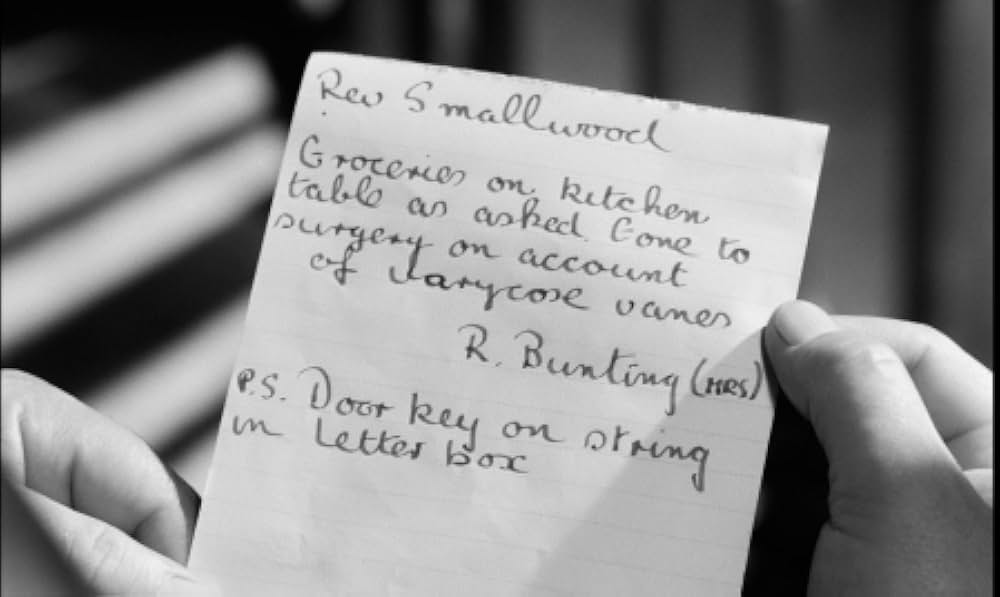 Rev Smallwood
Groceries on kitchen
table as asked. Gone to
surgery on account
of varycose vanes
R. Bunting (MRS)
P.S. Door key on string
in letter box